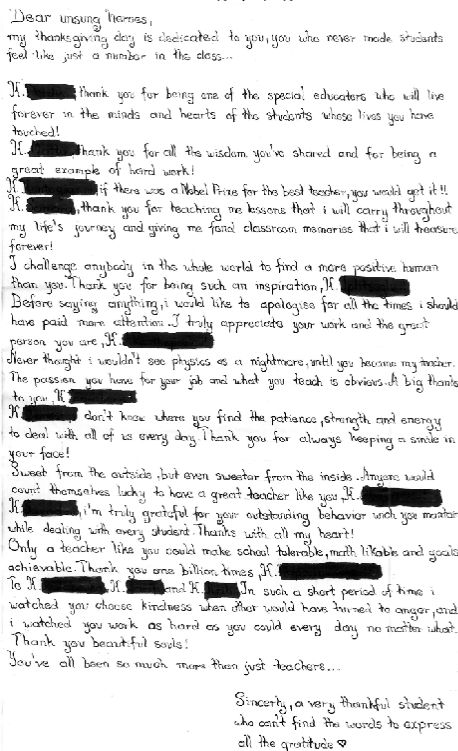 Dear unsung heroes,
my thanksgiving day is dedicated to you, you who never made students
feel like just a number in the class...
K. thank you for being one of the special educators who will live
forever in the minds and hearts of the students whose lives you have
touched!
K. Thank you for all the wisdom you've shared and for being a
great example of hard work!
K. if there was a Nobel Prize for the best teacher, you would get it!!
K. , thank you for teaching me lessons that i will carry throughout
my life's journey and giving me fond classroom memories that i will treasure
forever!
I challenge anybody in the whole world to find a more positive human
than you. Thank you for being such an inspiration, K.
Before saying anything, i would like to apologise for all the times i should
have paid more attention. I truly appreciate your work and the great
person you are, K.
Never thought i wouldn't see physics as a nightmare, until you became my teacher.
The passion you have for your job and what you teach is obvious. A big thanks
to you, K.
K. don't know where you find the patience, strength and energy
to deal with all of us every day. Thank you for always keeping a smile in
your face!
Sweet from the outside, but even sweeter from the inside. Anyone would
count themselves lucky to have a great teacher like you, K.
K. , i'm truly grateful for your outstanding behavior wich you maintain
while dealing with every student. Thanks with all my heart!
Only a teacher like you could make school tolerable, math likable and goals
achievable. Thank you one billion times, K.
To K. , K. and K. . In such a short period of time i
watched you choose kindness when other would have turned to anger, and
i watched you work as hard as you could every day no matter what.
Thank you beautiful souls!
You've all been so much more then just teachers...
Sincerly, a very thankful student
who can't find the words to express
all the gratitude ♡